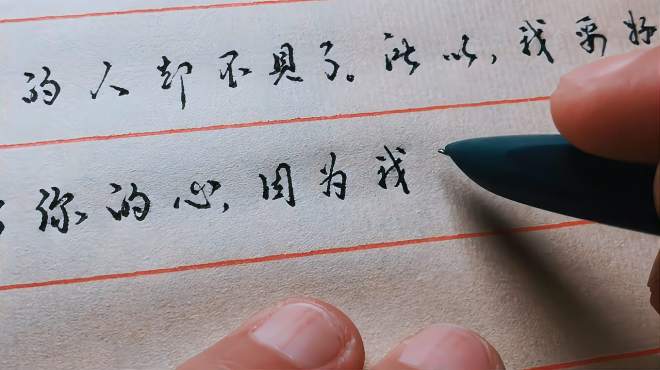 的人却不見了。所以,我要好
你的心,因为我